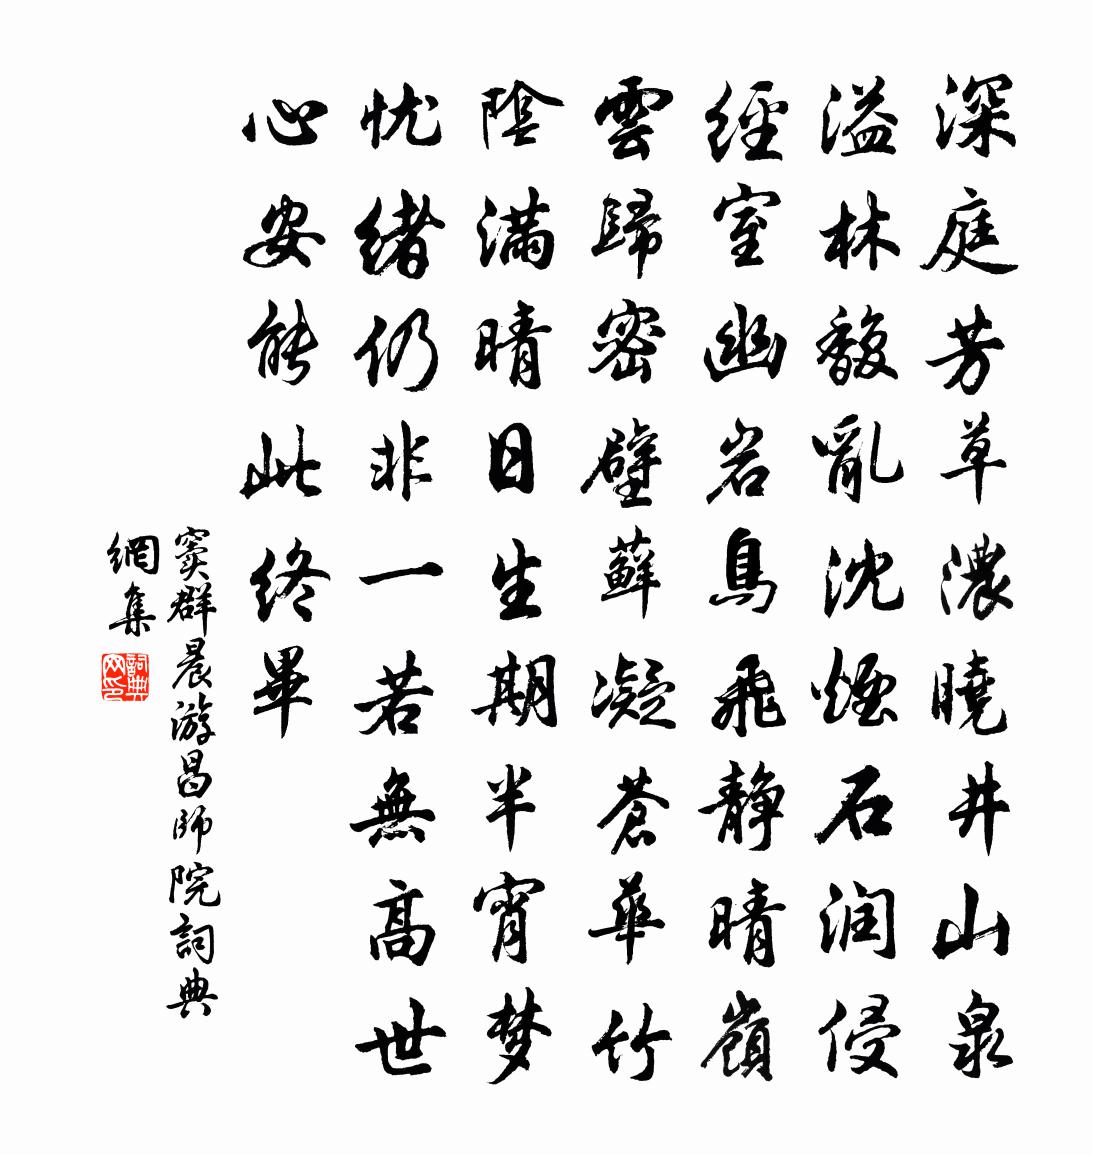 深庭芳草濃曉井山泉
溢林馥亂沈煙石润侵
經室幽岩鳥飛靜晴嶺
雲歸密壁蘚凝蒼華竹
陰滿晴日生期半宵梦
忧緒仍非一若無高世
心安能此終畢
竇群晨游昌師院詞典
網集
詞典网印